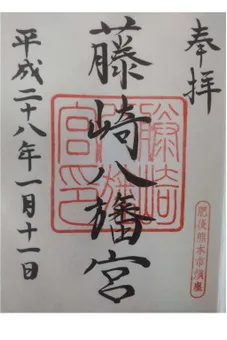 奉拝
藤崎八旛宮
平成二十八年一月十一日
藤崎
八旛
宮印
肥後熊本市鎮座